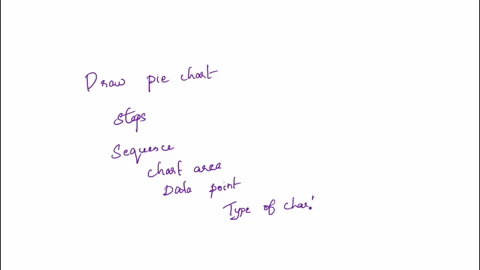 Draw pie chart
Steps
Sequence
chart area
Data point
Type of char